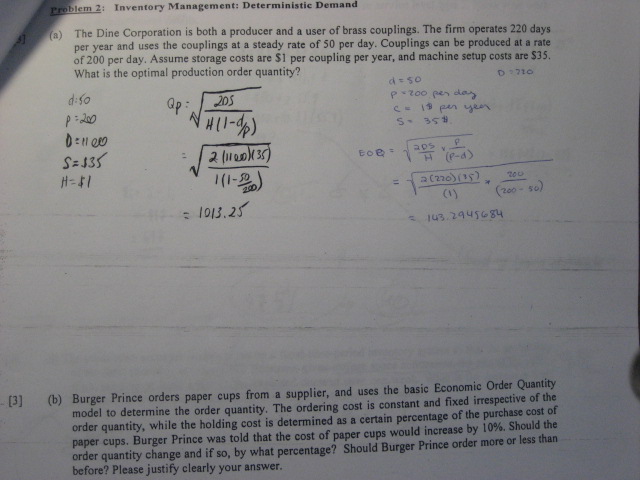 Problem 2: Inventory Management: Deterministic Demand
(a) The Dine Corporation is both a producer and a user of brass couplings. The firm operates 220 days
per year and uses the couplings at a steady rate of 50 per day. Couplings can be produced at a rate
of 200 per day. Assume storage costs are $1 per coupling per year, and machine setup costs are $35.
What is the optimal production order quantity?
d=50
p=200
D=11000
S=$35
H=$1
Qp = √ 2DS / H(1-d/p)
= √ 2(11000)(35) / 1(1-50/200)
= 1013.25
d=50 D=220
P=200 per day
C= 1$ per year
S= 35$
EOQ = √ 2DS/H × P/(P-d)
= √ 2(220)(35)/(1) × 200/(200-50)
= 143.2945684
[3] (b) Burger Prince orders paper cups from a supplier, and uses the basic Economic Order Quantity
model to determine the order quantity. The ordering cost is constant and fixed irrespective of the
order quantity, while the holding cost is determined as a certain percentage of the purchase cost of
paper cups. Burger Prince was told that the cost of paper cups would increase by 10%. Should the
order quantity change and if so, by what percentage? Should Burger Prince order more or less than
before? Please justify clearly your answer.